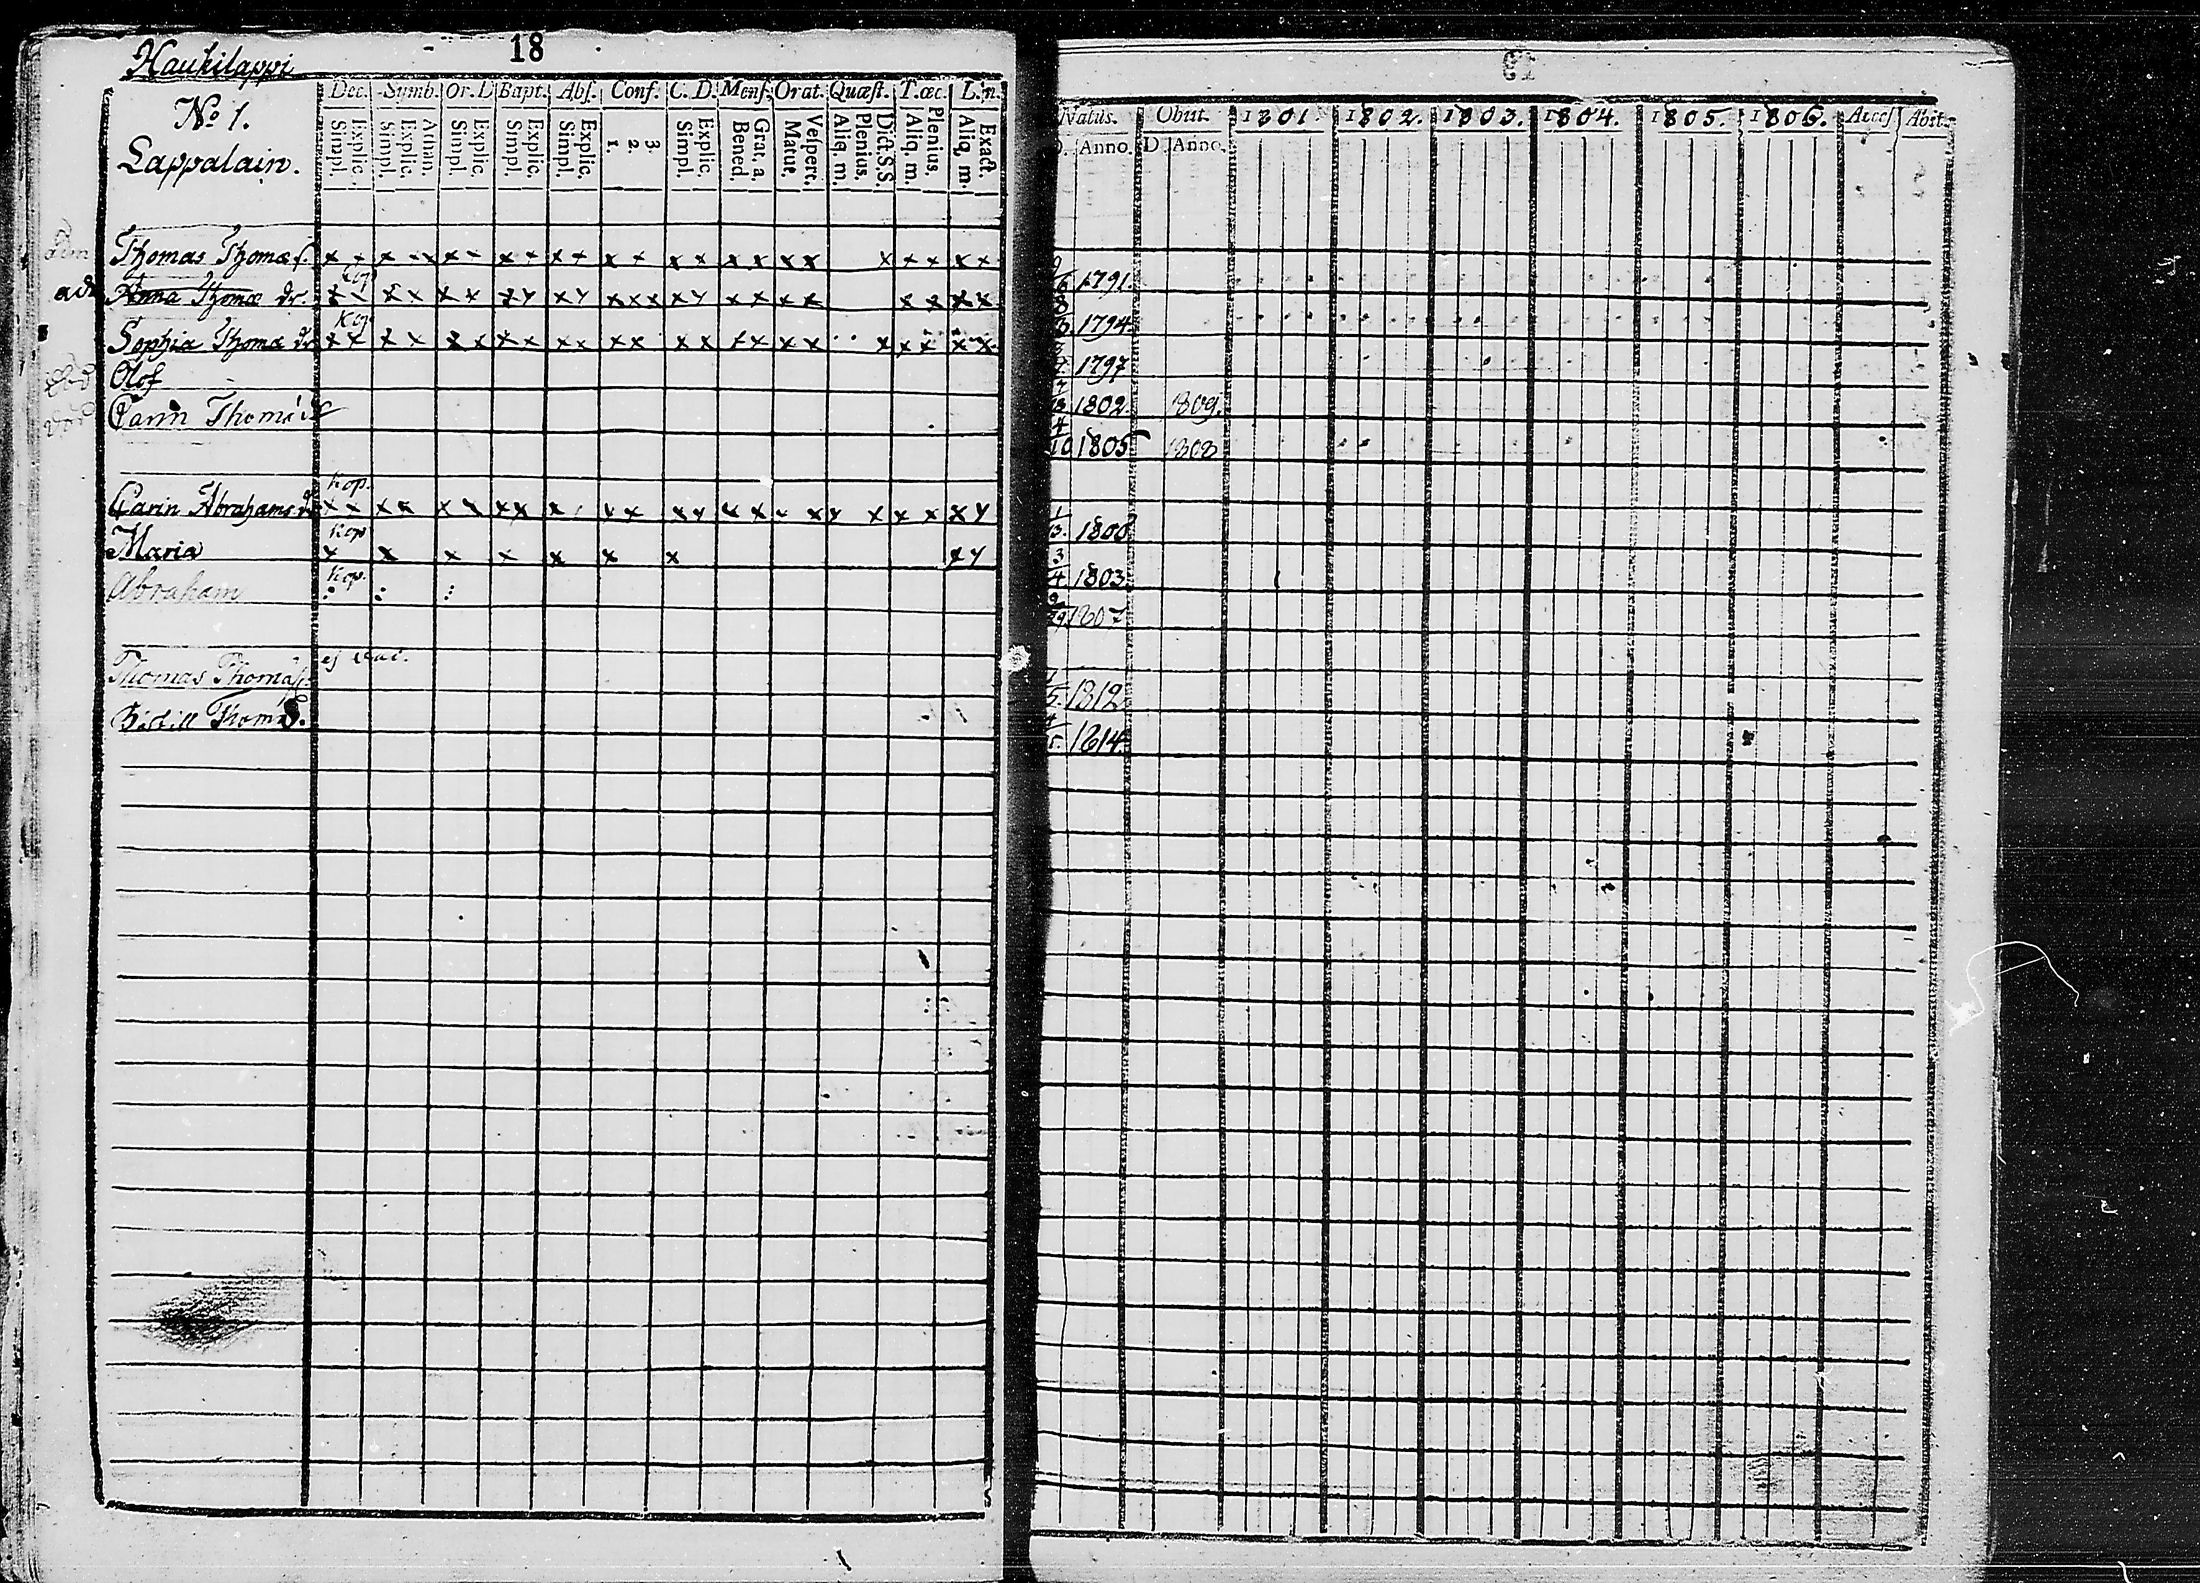 Haukilappi
18
Nо 1.
Lappalain.
Dec. Symb. Or. D Bapt. Abſ. Conf. C. D. Menſ. Orat. Quæſt. T. œc. L. n.
Explic. Simpl. Athan. Explic. Simpl. Explic. Simpl. Explic. Simpl. Explic. Simpl. 3. 2. 1. Explic. Simpl. Grat. a. Bened. Veſpert. Matut. Dict. S.S. Plenius. Aliq. m. Plenius. Aliq. m. Exact. Aliq. m.
Thomas Thomæ ſ.
Anna Thomæ dr.
Sophia Thomæ dr
Olof
Carin Thomæ
Kop.
Carin Abrahams dr
Kop
Maria
Kop.
Abraham
Thomas Thomæ
Thom
Natus. Obiit. 1801 1802. 1803. 1804. 1805. 1806. Acceſ Abit.
D. Anno. D. Anno.
1791.
1794
1797
1802 1809.
10 1805 1808
1800
3/4 1803
1807
1812
1814.